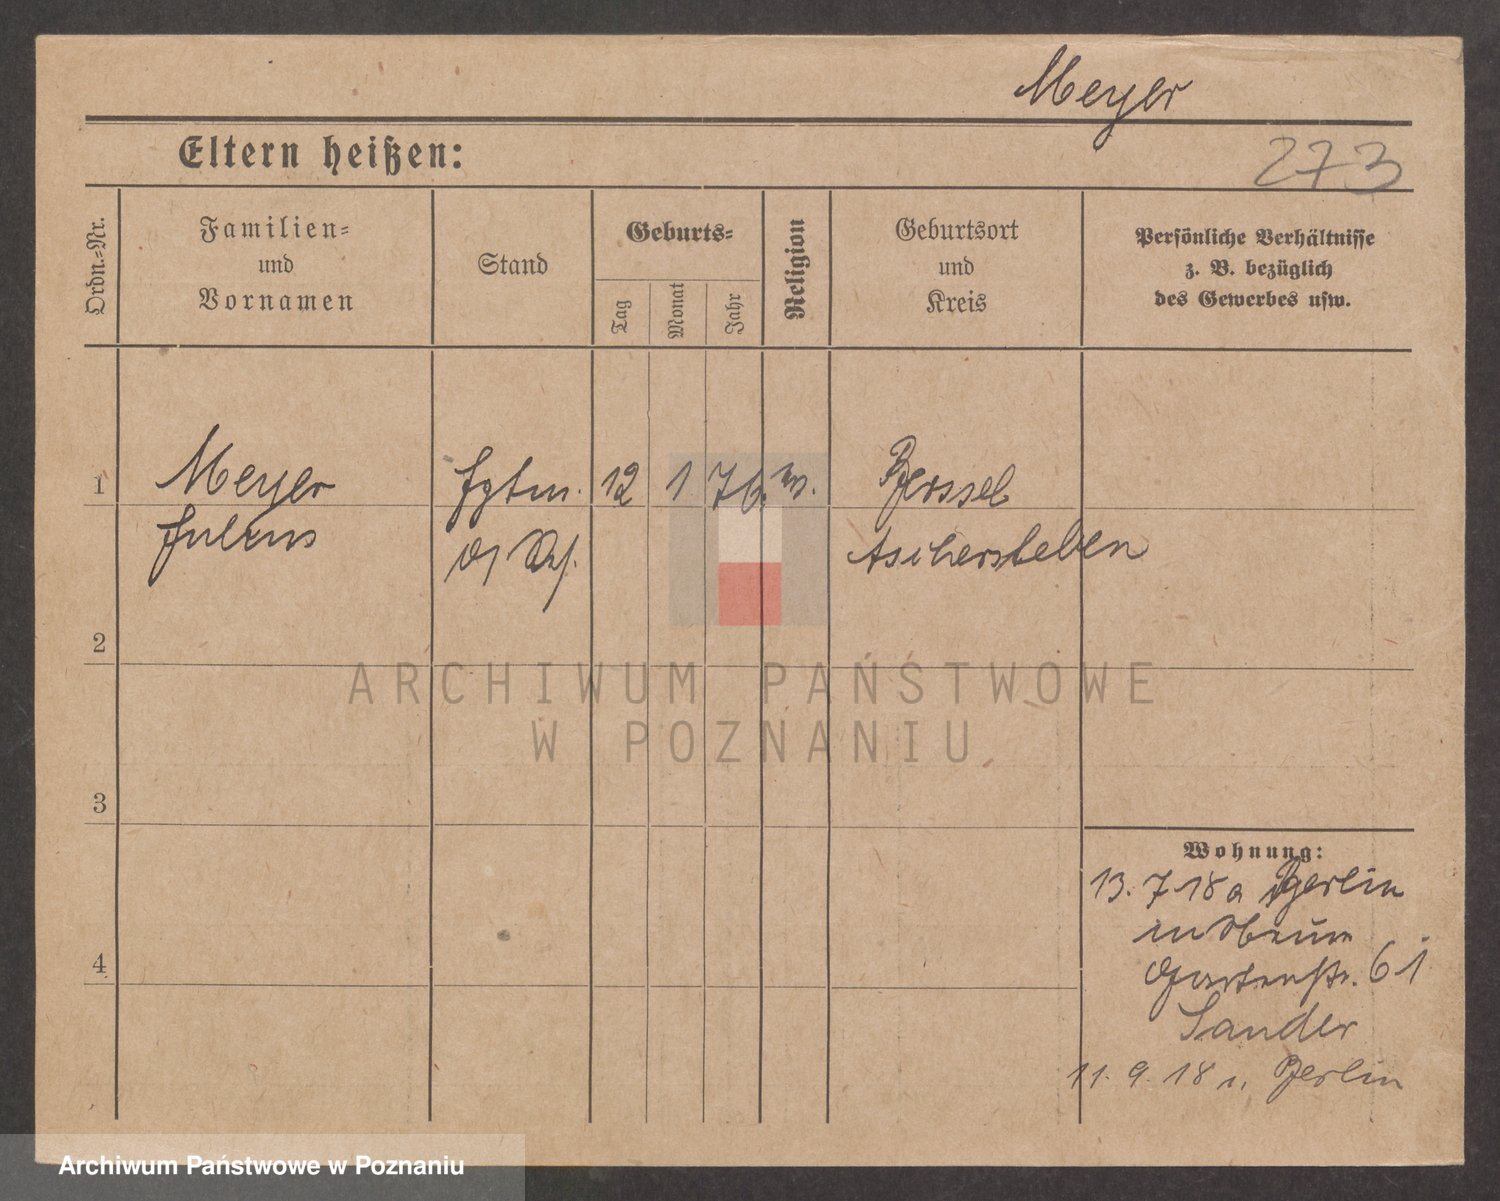 Meyer
Eltern heißen:
273
Ordn.-Nr.
Familien-
und
Vornamen
Stand
Geburts-
Tag
Monat
Jahr
Religion
Geburtsort
und
Kreis
Persönliche Verhältnisse
z. B. bezüglich
des Gewerbes usw.
1 Meyer 12 1 76. Berssel
Julius Aschersleben
2
ARCHIWUM PAŃSTWOWE
W POZNANIU
3
4
Wohnung:
13. 7 18 a Berlin
Gartenstr. 61
Sander
11. 9. 18 n. Berlin
Archiwum Państwowe w Poznaniu